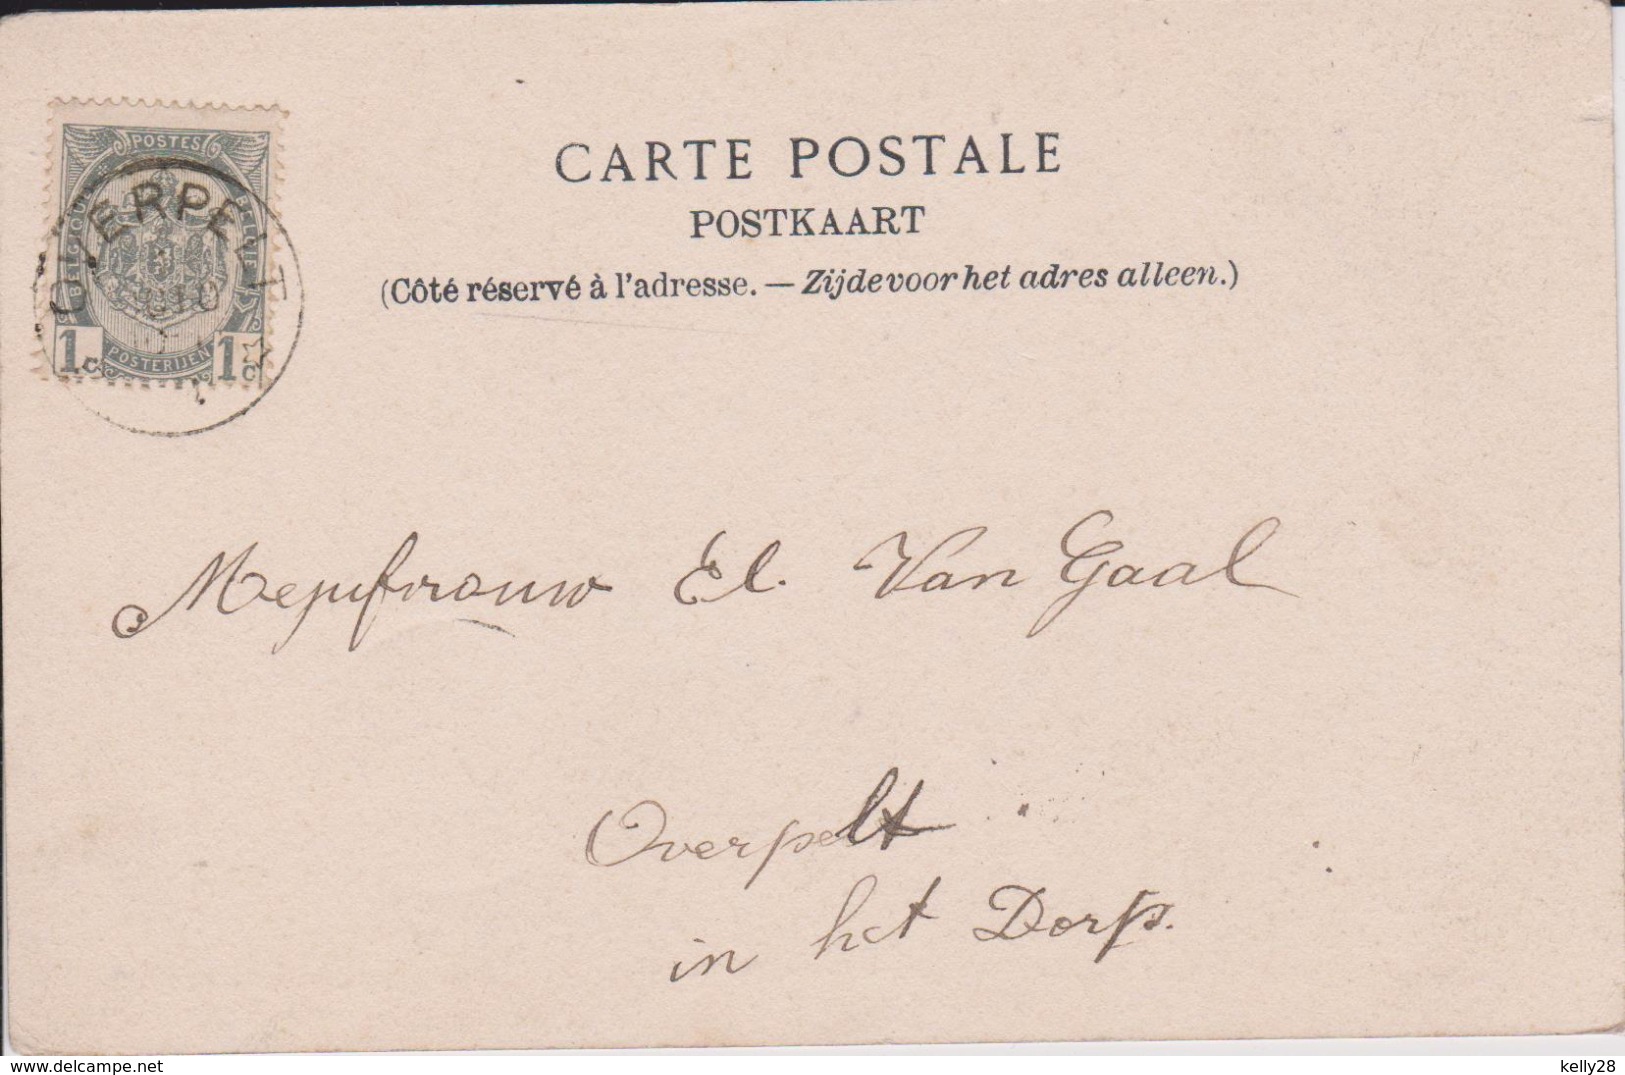 CARTE POSTALE
POSTKAART
(Côté réservé à l'adresse. — Zijde voor het adres alleen.)
POSTES
BELGIQUE
BELGIË
1c
POSTERIJEN
1c
OVERPELT
Mejufvrouw El. Van Gaal
Overpelt
in het Dorp.
delcampe.net
kelly28